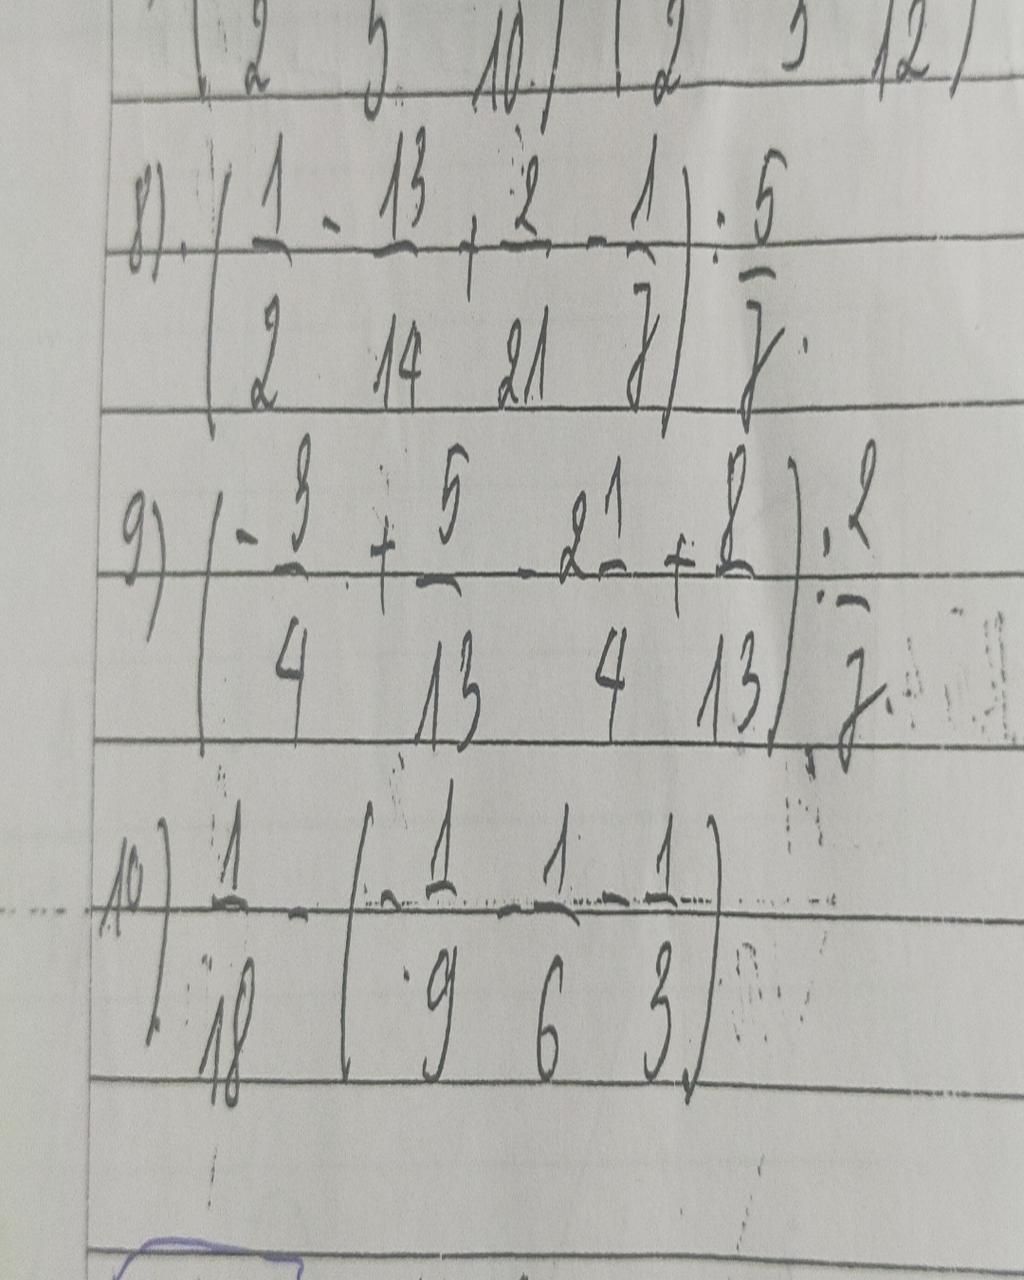 ( 2 5 10 ) ( 2 3 12 )
8). ( 1/2 - 13/14 + 2/21 - 1/7 ) : 5/7.
9) ( - 3/4 + 5/13 - 2 1/4 + 8/13 ) : 2/7.
10) 1/18 - ( - 1/9 - 1/6 - 1/3 )